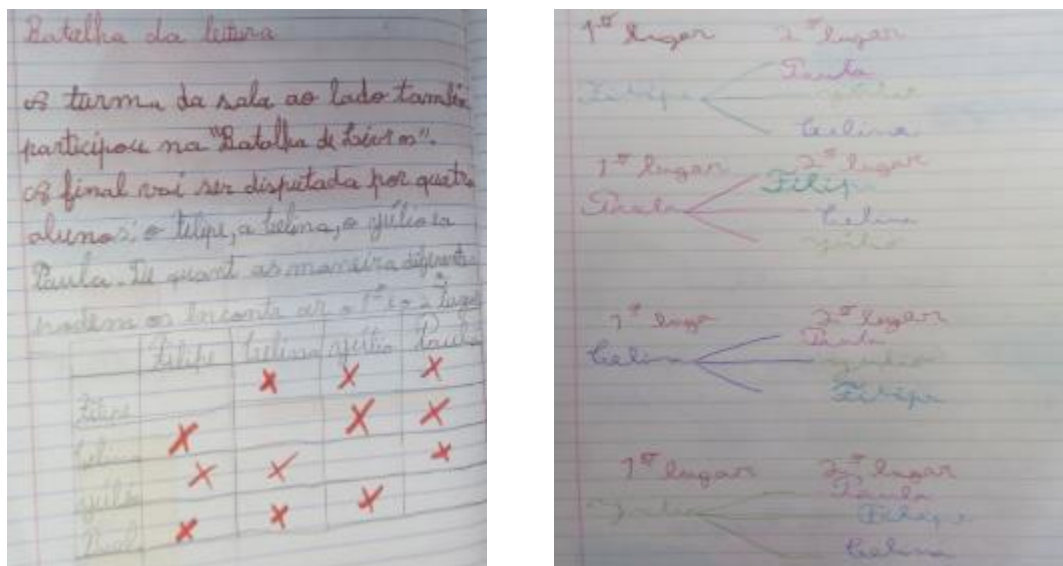 Batalha da leitura
A turma da sala ao lado também
participou na "Batalha de Livros".
A final vai ser disputada por quatro
alunos: o Filipe, a Celina, o Júlio e a
Paula. De quantas maneira diferentes
podem
o 1º e o 2º lugar
Filipe Celina Júlio Paula
Filipe
Celina
Júlio
Paula
1º lugar 2º lugar
Paula
Filipe Júlio
Celina
1º lugar 2º lugar
Filipe
Paula Celina
Júlio
1º lugar 2º lugar
Paula
Celina
Filipe
1º lugar 2º lugar
Paula
Júlio Filipe
Celina